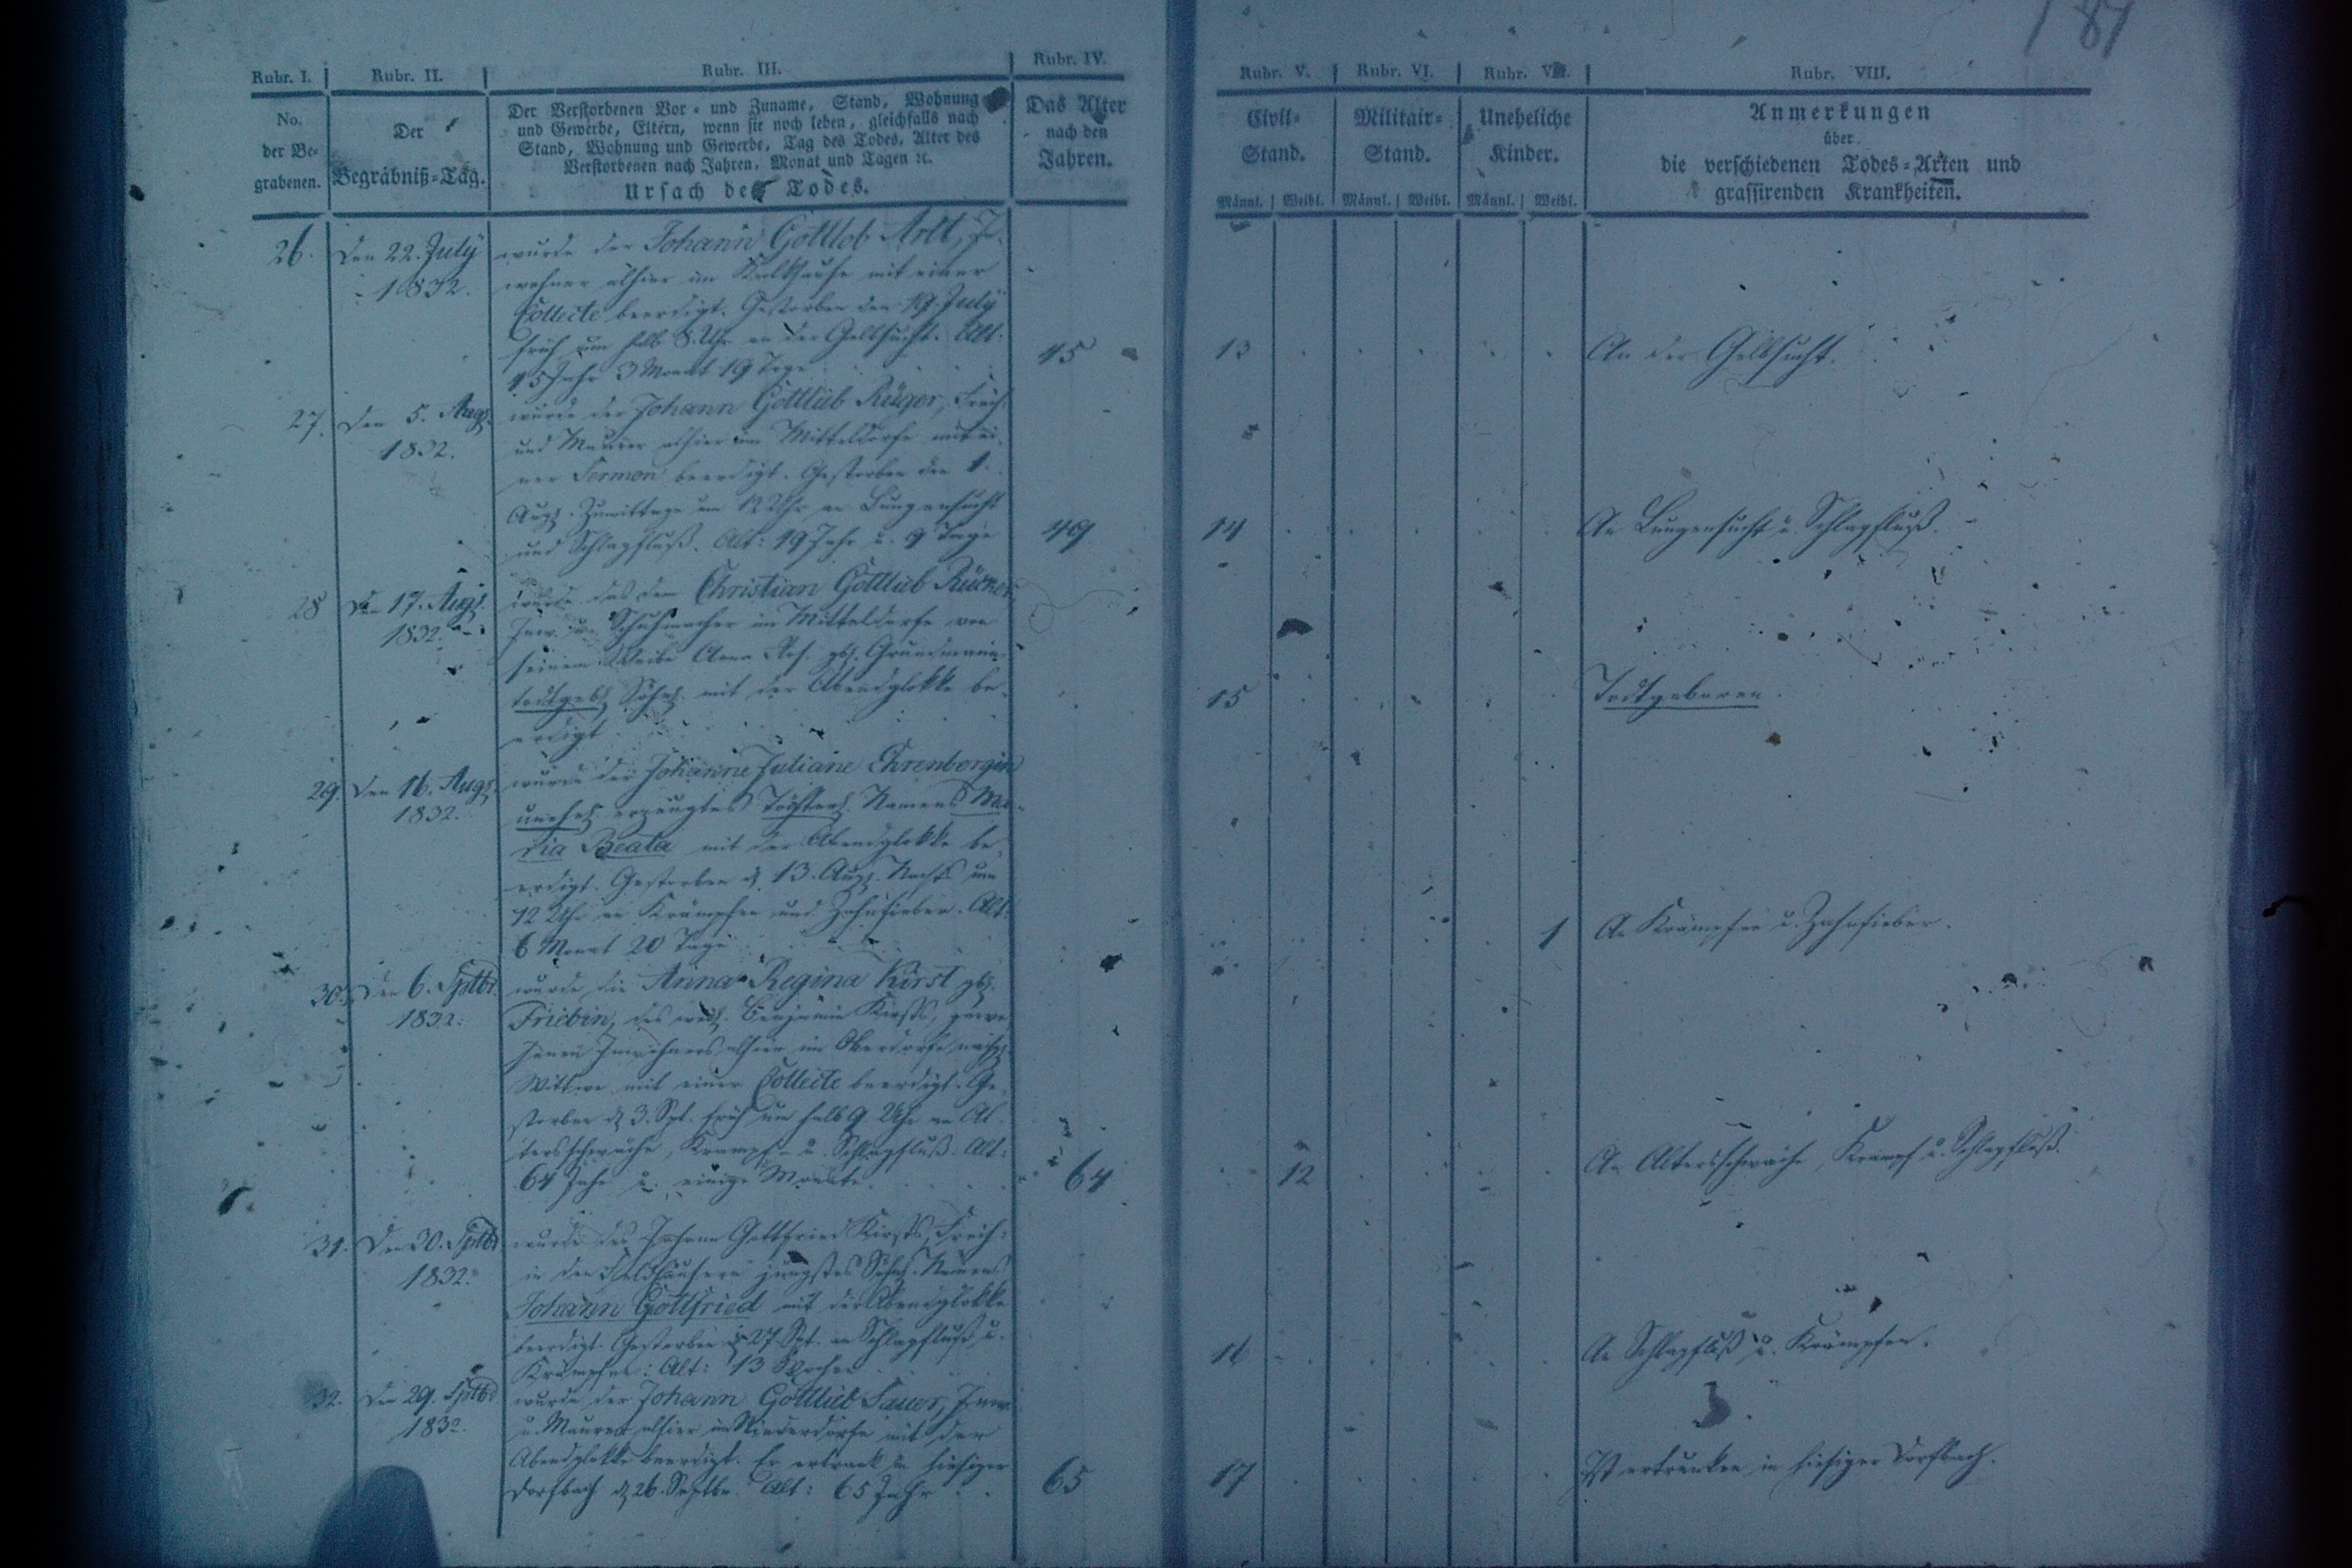 187
Rubr. I.
Rubr. II.
Rubr. III.
Rubr. IV.
Rubr. V.
Rubr. VI.
Rubr. VII.
Rubr. VIII.
No.
der Be-
grabenen.
Der
Begräbniß-Tag.
Der Verstorbenen Vor- und Zuname, Stand, Wohnung
und Gewerbe, Eltern, wenn sie noch leben, gleichfalls nach
Stand, Wohnung und Gewerbe, Tag des Todes, Alter des
Verstorbenen nach Jahren, Monat und Tagen ꝛc.
Ursach des Todes.
Das Alter
nach den
Jahren.
Civil-
Stand.
Männl. Weibl.
Militair-
Stand.
Männl. Weibl.
Uneheliche
Kinder.
Männl. Weibl.
Anmerkungen
über
die verschiedenen Todes-Arten und
grassirenden Krankheiten.
26.
Den 22. July
1832.
wurde der Johann Gottlob Arlt, In-
wohner alhier im mit einer
Collecte beerdigt. Gestorben den 19. July
früh um halb 8. Uhr an der Gelbsucht. Alt:
45 Jahr 3 Monat 19 Tage
45
13
An der Gelbsucht.
27.
Den 5. Aug.
1832.
wurde der Johann Gottlieb Rüger, Freih:
und Maurer alhier im Mitteldorfe mit ei-
ner Sermon beerdigt. Gestorben den 1.
Aug. Zumittage um 12 Uhr an Lungensucht
und Schlagfluß. Alt: 49 Jahr u. 9 Tage
49
14
An Lungensucht u. Schlagfluß.
28
Den 17. Aug.
1832.
wurde das dem Christian Gottlieb
Inw. u. Schuhmacher im Mitteldorfe von
seinem Weibe Anna Ros. geb. Grundmann
todtgeb. Söhnl. mit der Abendglokke be-
erdigt
15
Todtgeboren.
29.
Den 16. Aug.
1832.
wurde der Johanne Juliane Ehrenbergin
unehel. erzeugtes Töchterl. Namens Ma-
ria Beata mit der Abendglokke be-
erdigt. Gestorben d. 13. Aug. Nachts um
12 Uhr an Krämpfen und Zahnfieber. Alt:
6 Monat 20 Tage
1
An Krämpfen u. Zahnfieber.
30.
Den 6. Sptbr.
1832.
wurde die Anna Regina Kirst geb.
Friebin, des weil. Benjamin Kirsts, gewe-
senen Inwohners alhier im Oberdorfe
Wittwe mit einer Collecte beerdigt. Ge-
storben d. 3. Spt. früh um halb 9 Uhr an Al-
tersschwäche, Krampf u. Schlagfluß. Alt:
64 Jahr u. einige Monate.
64
12
An Altersschwäche, Krampf u. Schlagfluß.
31.
Den 30. Sptbr.
1832.
wurde des Johann Gottfried Kirsts, Freih:
in den Feldhäusern jüngstes Söhnl. Namens
Johann Gottfried mit der Abendglokke
beerdigt. Gestorben d. 27. Spt. an Schlagfluß u.
Krämpfen. Alt: 13 Wochen
16
An Schlagfluß u. Krämpfen.
32.
Den 29. Sptbr.
1832.
wurde der Johann Gottlieb Sauer, Inw.
u. Maurer alhier im Niederdorfe mit der
Abendglokke beerdigt. Er ertrank in hiesiger
Dorfbach d. 26. Septbr. Alt: 65 Jahr
65
17
Ist ertrunken in hiesiger Dorfbach.